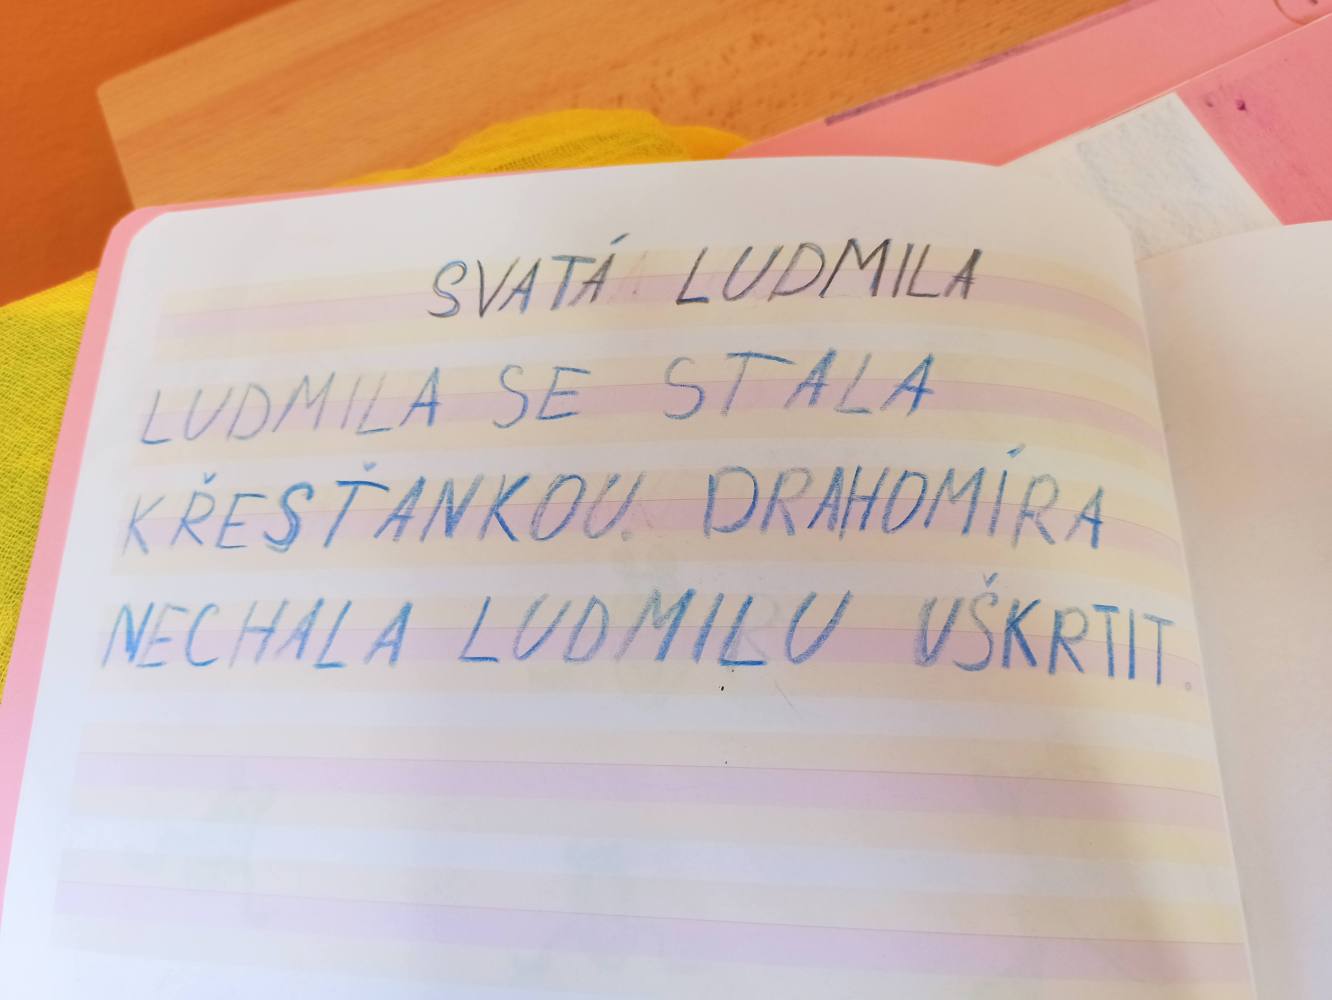 SVATÁ LUDMILA
LUDMILA SE STALA
KŘESŤANKOU. DRAHOMÍRA
NECHALA LUDMILU UŠKRTIT.